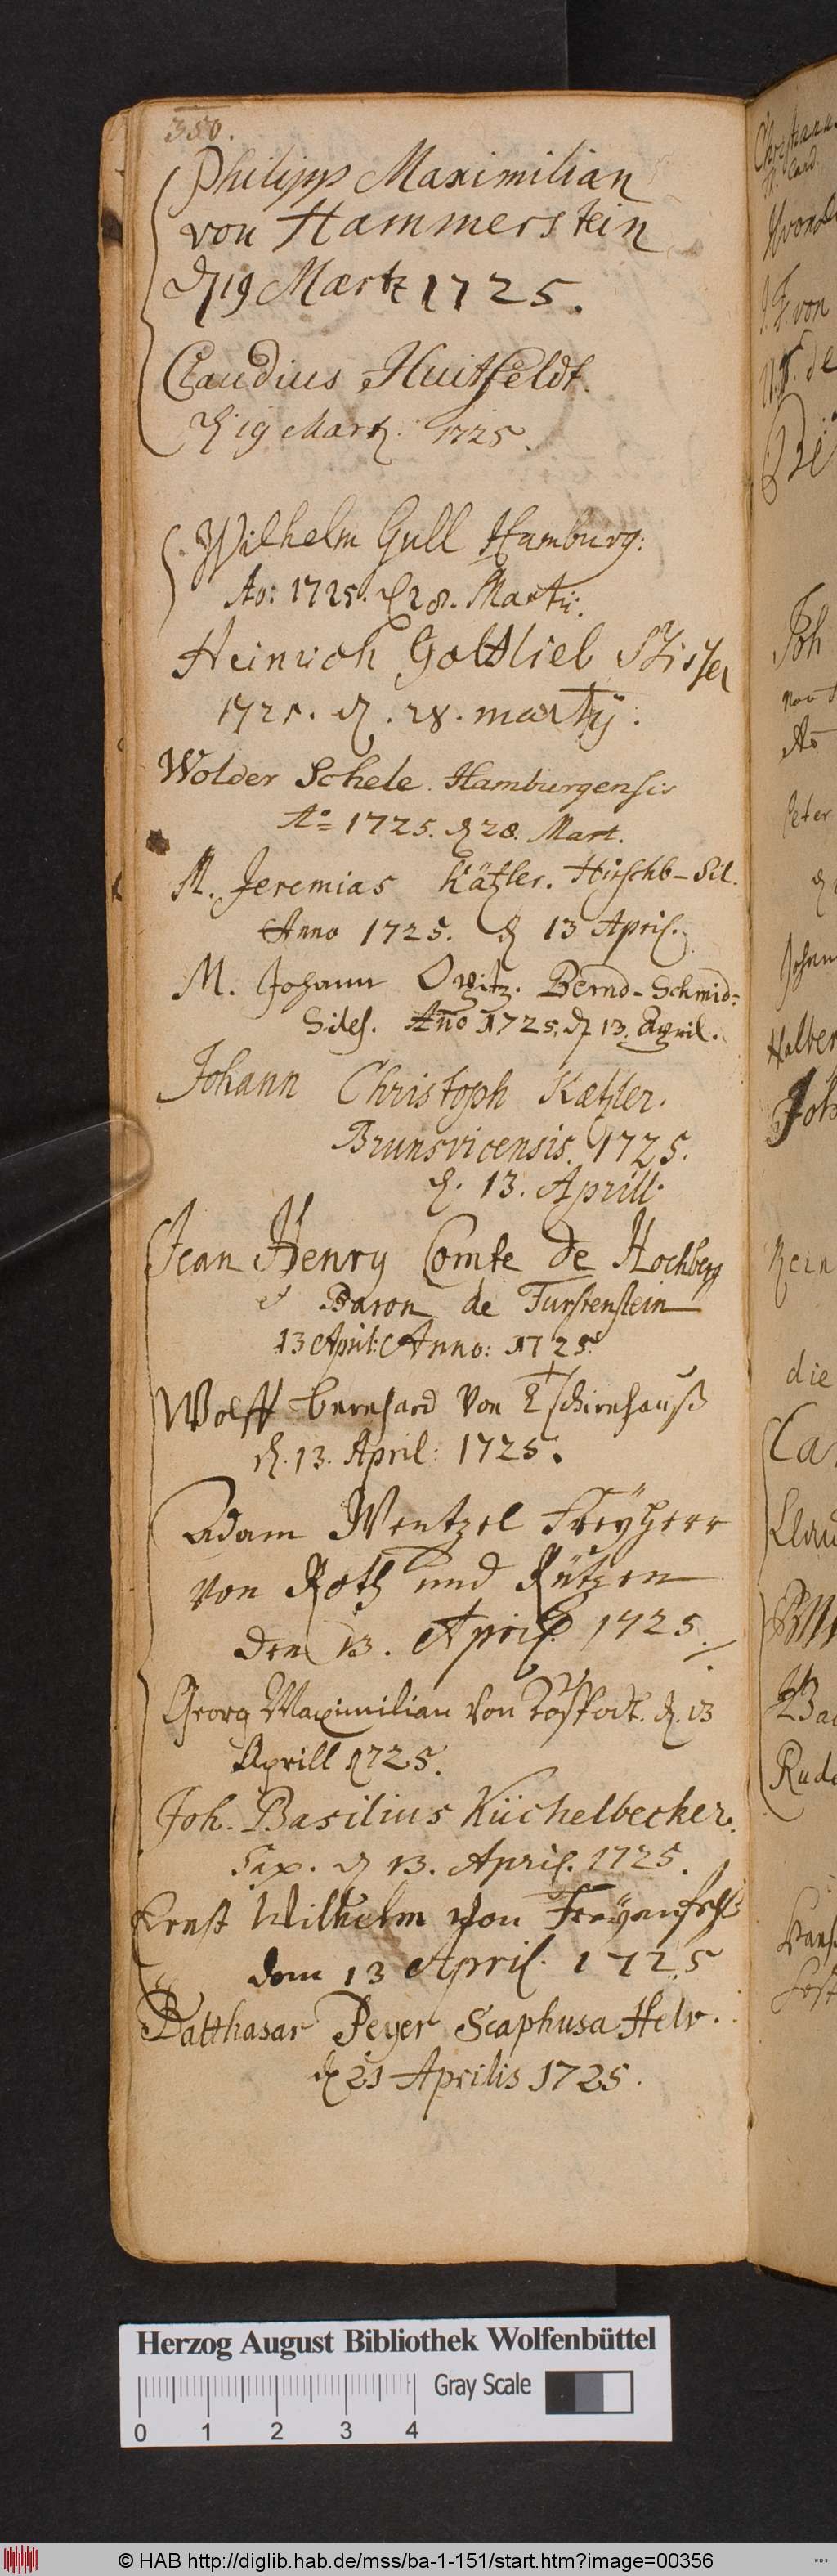 350.
Philipp Maximilian
von Hammerstein
d 19 Maertz 1725.
Claudius Huitfeldt.
d 19 Martz. 1725.
Wilhelm Gull Hamburg:
Ao: 1725. d 28. Martii.
Heinrich Gottlieb
1725. d. 28. martij.
Wolder Schele. Hamburgensis
Ao= 1725. d 28. Mart.
M. Jeremias Kätzler. Hirschb-Sil.
Anno 1725. d 13 April.
M. Johann Opitz. Bernd-Schmid=
Siles. Año 1725. d 13. April.
Johann Christoph Kætzler.
Brunsvicensis. 1725.
d. 13. Aprill.
Jean Henry Comte de Hochberg
et Baron de Furstenstein
13 April: Anno: 1725.
Wolff bernhard von Tschirnhauß
d. 13. April: 1725.
Adam Wentzel Freyherr
von Roth und Rützen
den 13. April 1725.
Georg Maximilian von d. 13
Aprill 1725.
Joh. Basilius Küchelbecker.
Sax. d 13. April. 1725.
Ernst Wilhelm von
dem 13 April. 1725
Balthasar Peyer Scaphusa Helv.
d 21 Aprilis 1725.
Herzog August Bibliothek Wolfenbüttel
Gray Scale
0 1 2 3 4
© HAB http://diglib.hab.de/mss/ba-1-151/start.htm?image=00356